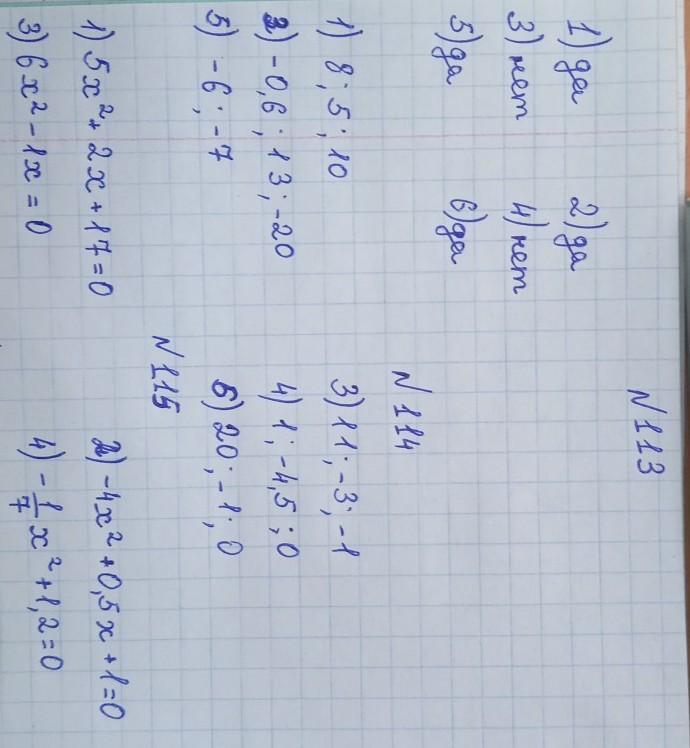 N113
1) да 2) да
3) нет 4) нет
5) да 6) да
N114
1) 8; 5; 10 3) 11; -3; -1
2) -0,6; 13; -20 4) 1; -4,5; 0
5) -6; -7 6) 20; -1; 0
N115
1) 5x² + 2x + 17 = 0 2) -4x² + 0,5x + 1 = 0
3) 6x² - 1x = 0 4) -1/7 x² + 1,2 = 0